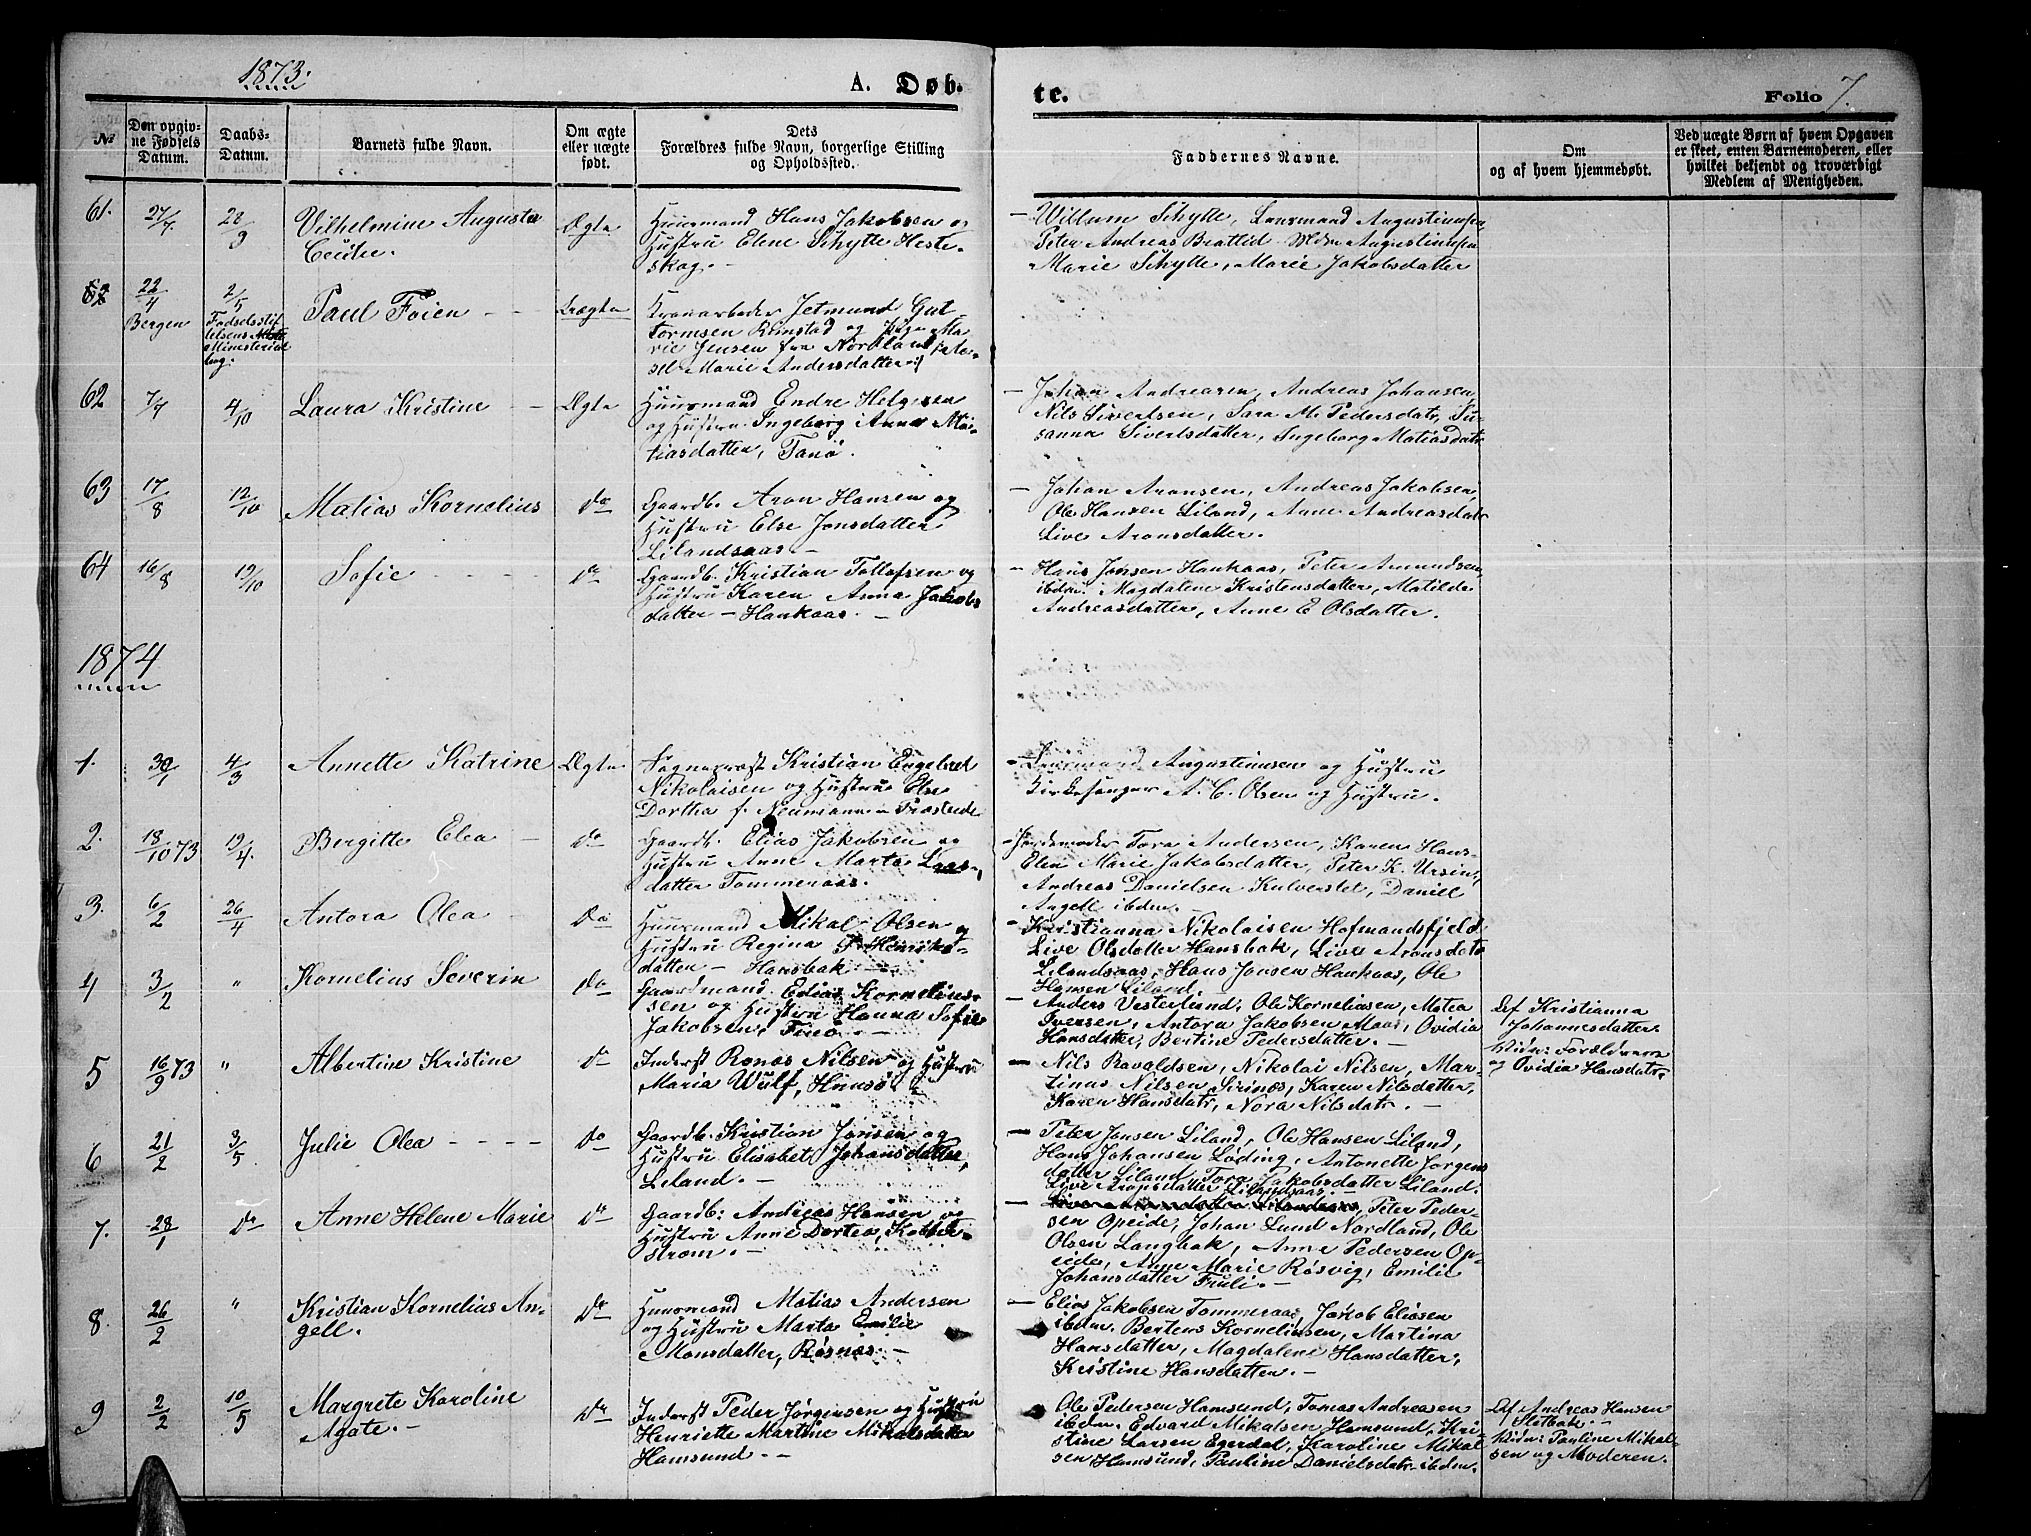 1873.
A. Døb-
te.
Folio 7.
№
Den opgiv-
ne Fødsels
Datum.
Daabs-
Datum.
Barnets fulde Navn.
Om ægte
eller uægte
født.
Dets
Forældres fulde Navn, borgerlige Stilling
og Opholdssted.
Faddernes Navne.
Om
og af hvem hjemmedøbt.
Ved uægte Børn af hvem Opgaven
er skeet, enten Barnemoderen, eller
hvilket bekjendt og troværdigt
Medlem af Menigheden.
61. 27/7 28/9 Vilhelmine Augusta
Cecilie.
Ægte
Huusmand Hans Jakobsen og
Hustru Elene Schytte Heste-
skog. -
- Willum Schytte, Lensmand Augustinusen,
Peter Andreas Brattlid. Mdm Augustinusen
Marie Schytte, Marie Jakobsdatter
22/4 Bergen
2/5 Fødselsstif-
telsens
Ministerial
bog.
Paul Foien - -
Uægte
Jetmund Gut-
tormsen Rimstad og Pige Ma-
rie Jensen fra Nordland
Marie Andersdatter
62 7/7 4/10 Laura Kristine -
Ægte
Huusmand Endre Helgesen
og Hustru Ingeborg Anna Ma-
tiasdatter, Tanø.
- Johan Andreasen, Andreas Johansen,
Nils Sivertsen, Sara M. Pedersdatr, Su-
sanna Sivertsdatter, Ingeborg Matiasdatr
63 17/8 12/10 Matias Kornelius
Do
Gaardb. Aron Hansen og
Hustru Else Jonsdatter
Lilandsaas -
- Johan Aronsen, Andreas Jakobsen,
Ole Hansen Liland, Anne Andreasdatr
Live Aronsdatter.
64 16/8 19/10 Sofie - - - -
Do
Gaardb. Kristian Tollofsen og
Hustru Karen Anna Jakobs
datter - Haukaas. -
- Hans Jonsen Haukaas, Peter Amundsen
ibdm. Magdalene Kristensdatter, Matilde
Andreasdatter, Anne E. Olsdatter.
1874
1. 30/1 4/3 Annette Katrine
Ægte
Sognepræst Kristian Engebret
Nikolaisen og Hustru Else
Dorthea f. Neumann - Præsteide
- Lensmand Augustinusen og Hustru
Kirkesanger A. C. Olsen og Hustru.
2. 18/10 73 19/4. Bergitte Elea -
Do
Gaardb. Elias Jakobsen og
Hustru Anne Marta Lars-
datter Tommeraas.
- Jordemoder Tora Andersen, Karen Hans-
Elen Marie Jakobsdatter, Peter K. Ursin,
Andreas Danielsen Kulverstet, Daniel
Angell ibdm. -
3. 6/2 26/4 Antora Olea -
Do
Huusmand Mikal Olsen og
Hustru Regina Henriks-
datter - Hansbak -
- Kristianna Nikolaisen Hofmandsfjeld
Live Olsdatter Hansbak, Live Aronsdatr
Lilandsaas, Hans Jonsen Haukaas, Ole
Hansen Liland.
4 3/2 " Kornelius Severin
Do
Gaardmand Edias Kornelius-
sen og Hustru Hanna Sofie
Jakobsen, Finø. -
- Anders Vesterlund, Ole Korneliusen, Matea
Iversen, Antora Jakobsen Maas, Ovidia
Hansdatter, Bertine Pedersdatter. -
Af Kristianna
Johannesdatter.
Vidn: Forældrene
og Ovidia Hansdatr
5 16/9 73 " Albertine Kristine
Do
Inderst Renas Nilsen og Hustru
Maria Wulf, Hamsø
- Nils Ravaldsen, Nikolai Nilsen, Mar-
tinus Nilsen Sirinæs, Karen Nilsdatter,
Karen Hansdatr, Nora Nilsdatr. -
6 21/2 3/5 Julie Olea - - - -
Do
Gaardb. Kristian Jonsen og
Hustru Elisabet Johansdatter,
Leland. -
- Peter Jonsen Liland, Ole Hansen Liland,
Hans Johansen Løding, Antonette Jørgens
datter Liland, Tora Jakobsdatter Liland.
Live Aronsdatter Lilandsaas. -
7. 28/1 Do Anne Helene Marie
Do
Gaardb: Andreas Hansen og
Hustru Anne Dortea, Kalde-
strøm. -
- Peter Peder-
sen Opeide, Johan Lund Nordland, Ole
Olsen Langbak, Anne Pedersen Op-
eide, Anne Marie Røsvig, Emilie
Johansdatter Fruli. -
8. 26/2 " Kristian Kornelius An-
gell.
Do
Huusmand Matias Andersen
og Hustru Marta Emilie
Monsdatter, Røsnæs. -
- Elias Jakobsen Tommeraas, Jakob Eliasen
ibdm. Bertens Korneliusen, Martina
Hansdatter, Magdalene Hansdatter,
Kristine Hansdatter. -
9 2/2 10/5 Margrete Karoline
Agate. -
Do
Inderst Peder Jørgensen og Hustru
Henriette Martine Mikalsdatter
Hamsund. -
Ole Pedersen Hamsund, Tomas Andreasen
ibdm. Edvard Mikalsen Hamsund, Kri-
stine Larsen Egerdal, Karoline Mikal-
sen Hamsund, Pauline Danielsdatr ibdm.
Af Andreas Hansen
Slotbak. -
Vidn: Pauline Mikal-
sen og Moderen.